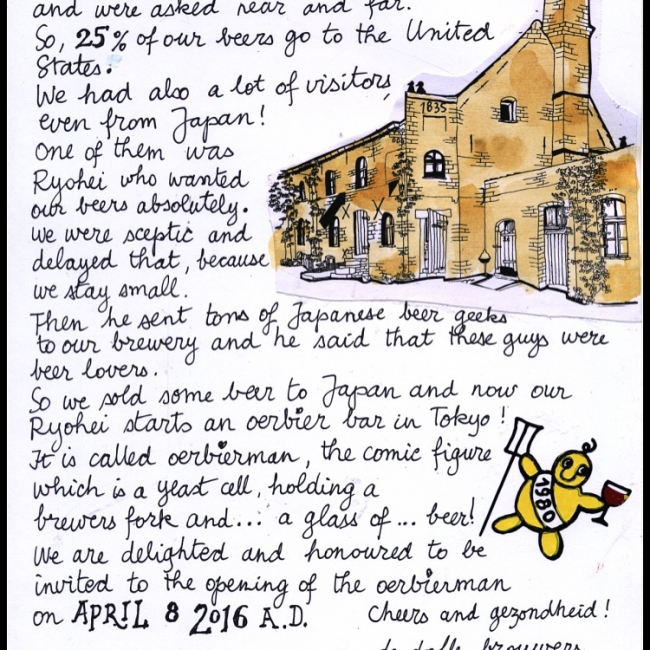 and were asked near and far.
So, 25% of our beers go to the United
States.
We had also a lot of visitors,
even from Japan!
One of them was
Ryohei who wanted
our beers absolutely.
We were sceptic and
delayed that, because
we stay small.
Then he sent tons of Japanese beer geeks
to our brewery and he said that these guys were
beer lovers.
So we sold some beer to Japan and now our
Ryohei starts an oerbier bar in Tokyo!
It is called oerbierman, the comic figure
which is a yeast cell, holding a
brewers fork and... a glass of ... beer!
We are delighted and honoured to be
invited to the opening of the oerbierman
on APRIL 8 2016 A.D.
Cheers and gezondheid!
de dolle brouwers
1835
1980